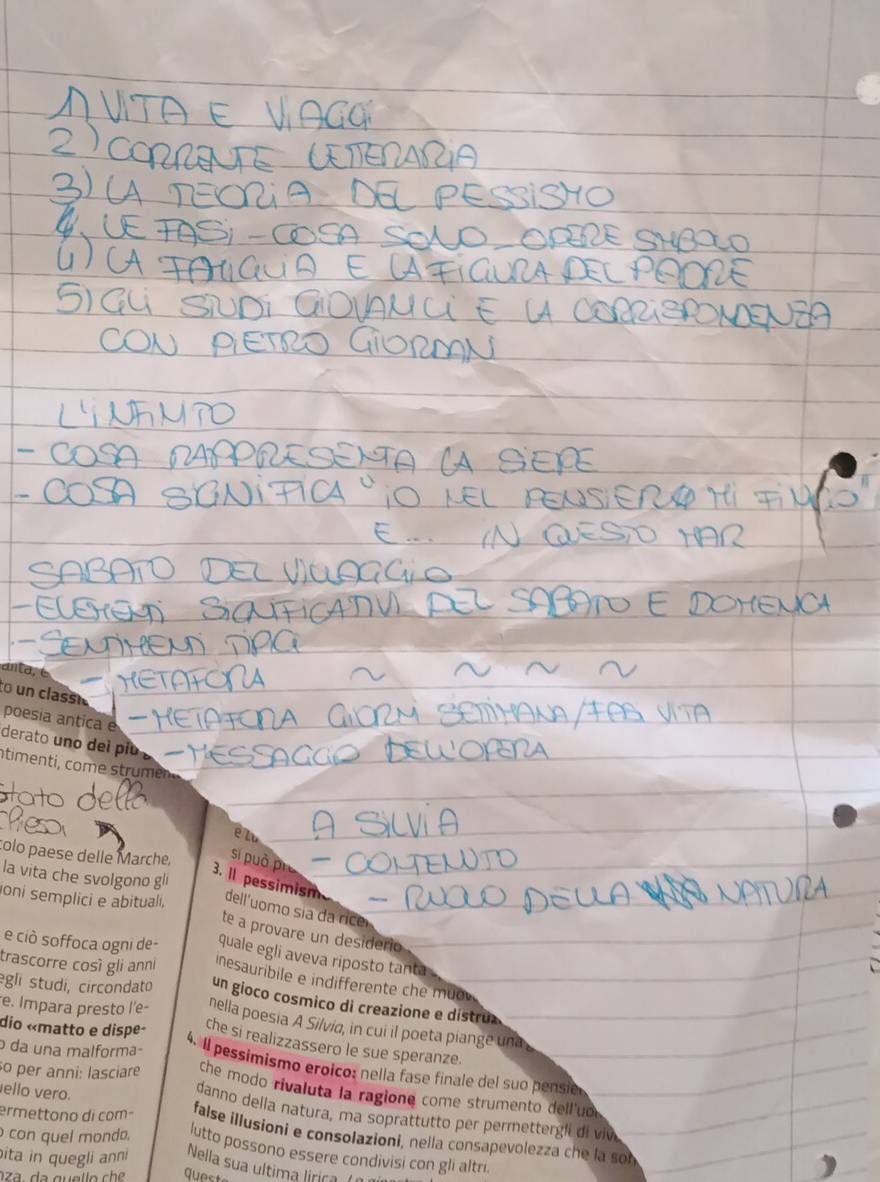 1) VITA E VIAGGI
2) CORRENTE LETTERARIA
3) LA TEORIA DEL PESSISMO
LE FASI - COSA SONO - OPERE SIMBOLO
4) LA FAMIGLIA E LA FIGURA DEL PADRE
5) GLI STUDI GIOVANILI E LA CORRISPONDENZA
CON PIETRO GIORDANI
L'INFINITO
- COSA RAPPRESENTA LA SIEPE
- COSA SIGNIFICA "IO NEL PENSIERO MI FINGO"
E... IN QUESTO MAR
SABATO DEL VILLAGGIO
- ELEMENTI SIGNIFICATIVI DEL SABATO E DOMENICA
- SENTIMENTI TIPICI
- METAFORA ~ ~ ~ ~
- METAFORA GIORNI SETTIMANA/FASI VITA
- MESSAGGIO DELL'OPERA
A SILVIA
- CONTENUTO
- RUOLO DELLA NATURA
to un classi
poesia antica e
derato uno dei più
ntimenti, come strumen
stato della
chiesa
colo paese delle Marche,
la vita che svolgono gli
ioni semplici e abituali,
e ciò soffoca ogni de-
trascorre così gli anni
egli studi, circondato
re. Impara presto l'e-
dio «matto e dispe-
o da una malforma-
so per anni: lasciare
ello vero.
ermettono di com-
o con quel mondo,
pita in quegli anni
nza, da quello che
si può
3. Il pessimism
dell'uomo sia da rice
te a provare un desiderio
quale egli aveva riposto tanta
inesauribile e indifferente che muov
un gioco cosmico di creazione e distruz
nella poesia A Silvia, in cui il poeta piange una
che si realizzassero le sue speranze.
4. Il pessimismo eroico: nella fase finale del suo pensie
che modo rivaluta la ragione come strumento dell'uo
danno della natura, ma soprattutto per permettergli di viv
false illusioni e consolazioni, nella consapevolezza che la
lutto possono essere condivisi con gli altri.
Nella sua ultima lirica